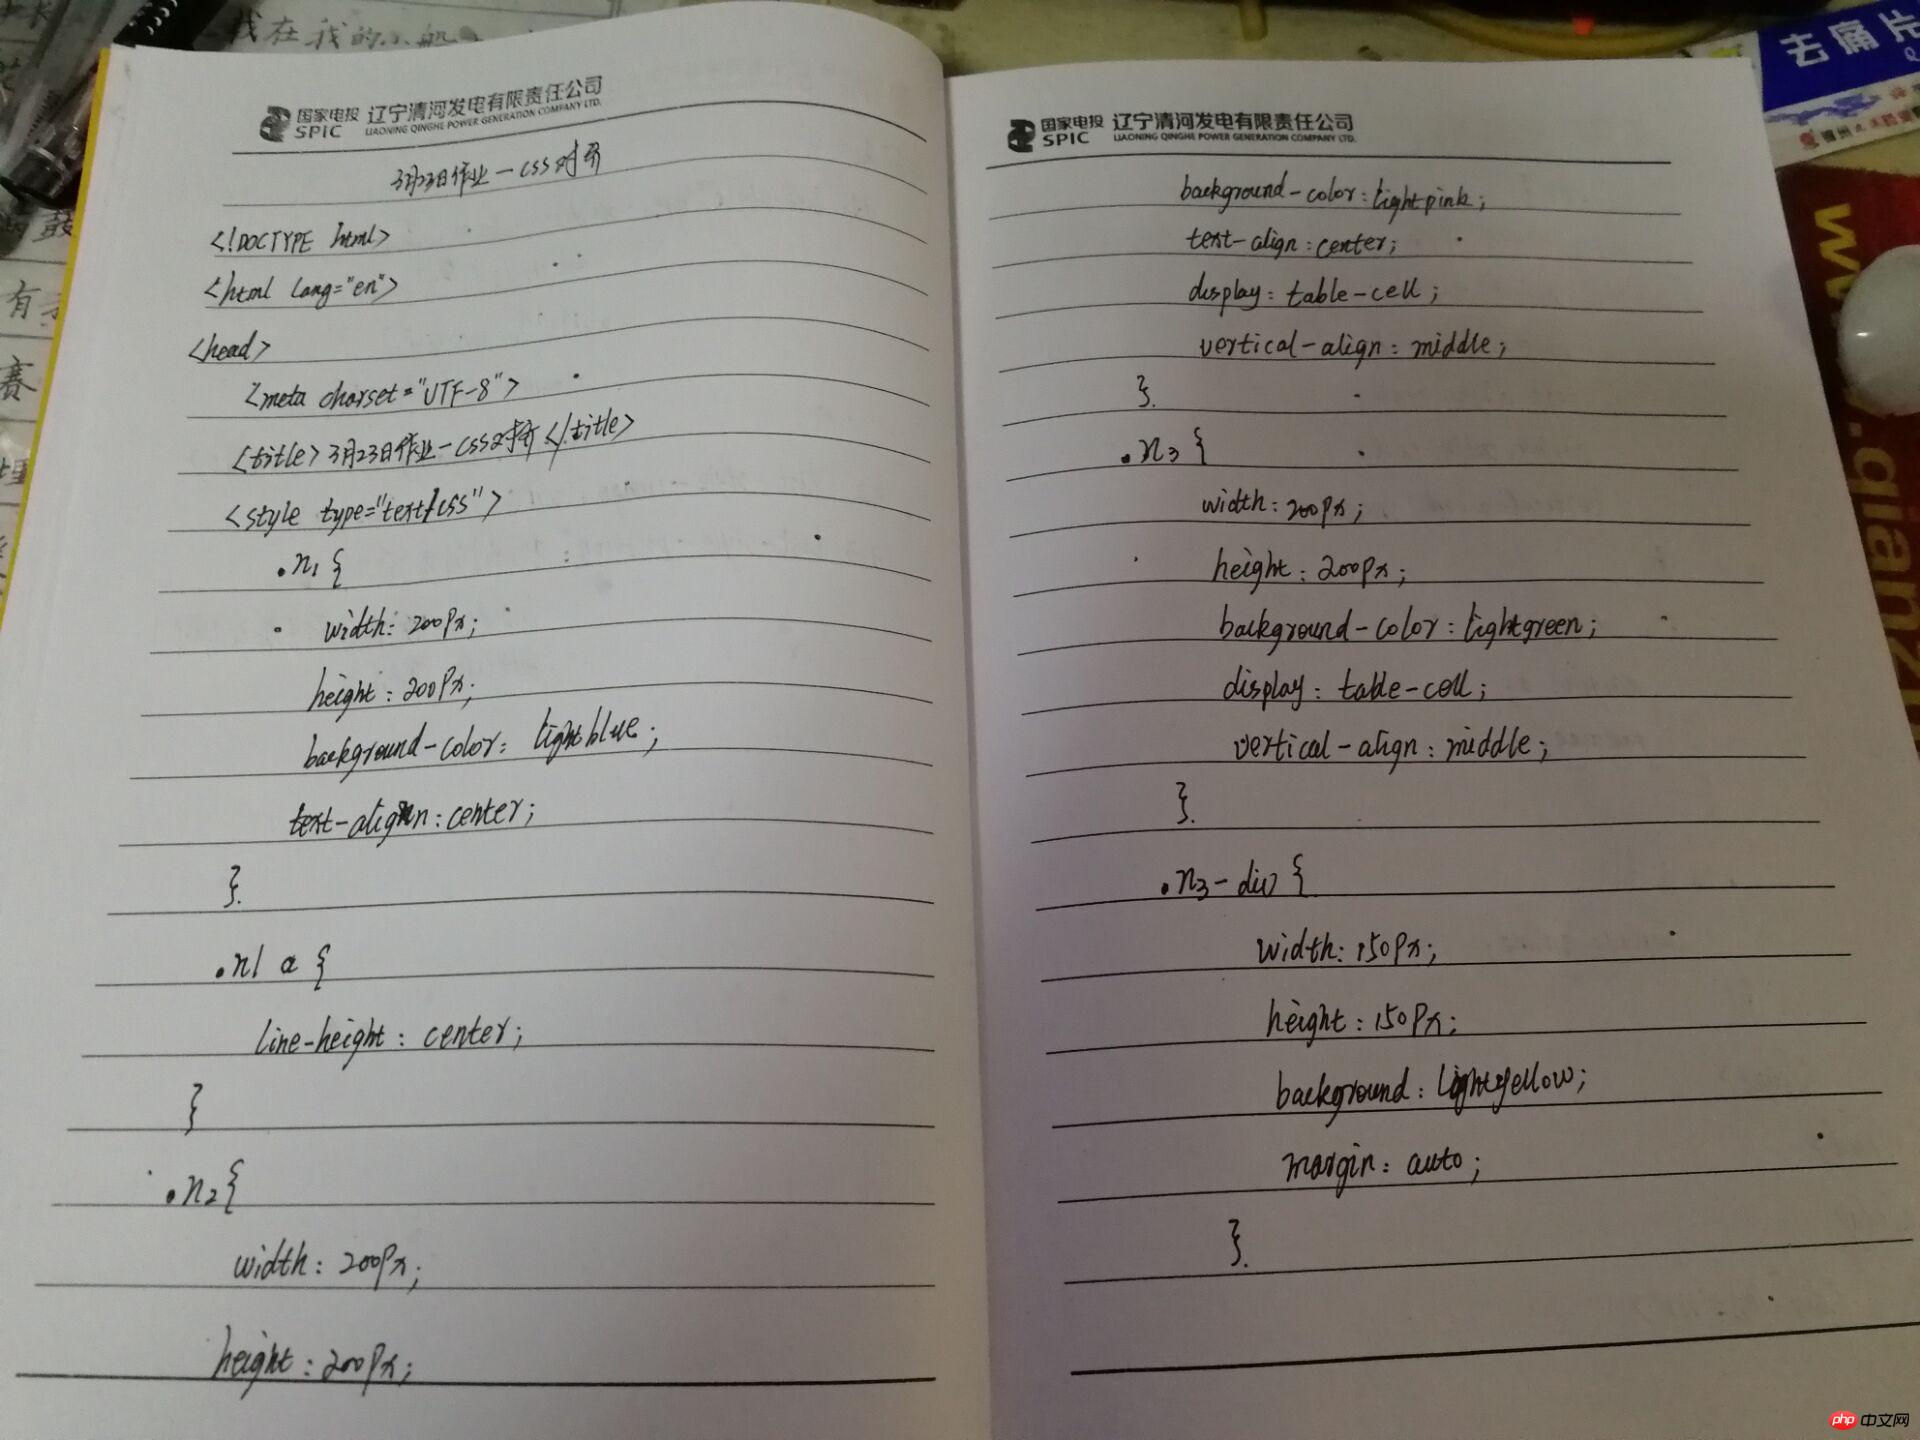 我在我的小船
国家电投 辽宁清河发电有限责任公司
SPIC LIAONING QINGHE POWER GENERATION COMPANY LTD.
3月23日作业—CSS对齐
<!DOCTYPE html>
<html lang="en">
<head>
<meta charset="UTF-8">
<title>3月23日作业—CSS对齐</title>
<style type="text/css">
.n1 {
width: 200px;
height: 200px;
background-color: lightblue;
text-align: center;
}
.n1 a {
line-height: center;
}
.n2 {
width: 200px;
height: 200px;
国家电投 辽宁清河发电有限责任公司
SPIC LIAONING QINGHE POWER GENERATION COMPANY LTD.
background-color: lightpink;
text-align: center;
display: table-cell;
vertical-align: middle;
}
.n3 {
width: 200px;
height: 200px;
background-color: lightgreen;
display: table-cell;
vertical-align: middle;
}
.n3-div {
width: 150px;
height: 150px;
background: lightyellow;
margin: auto;
}
去痛片
有
赛
php 中文网